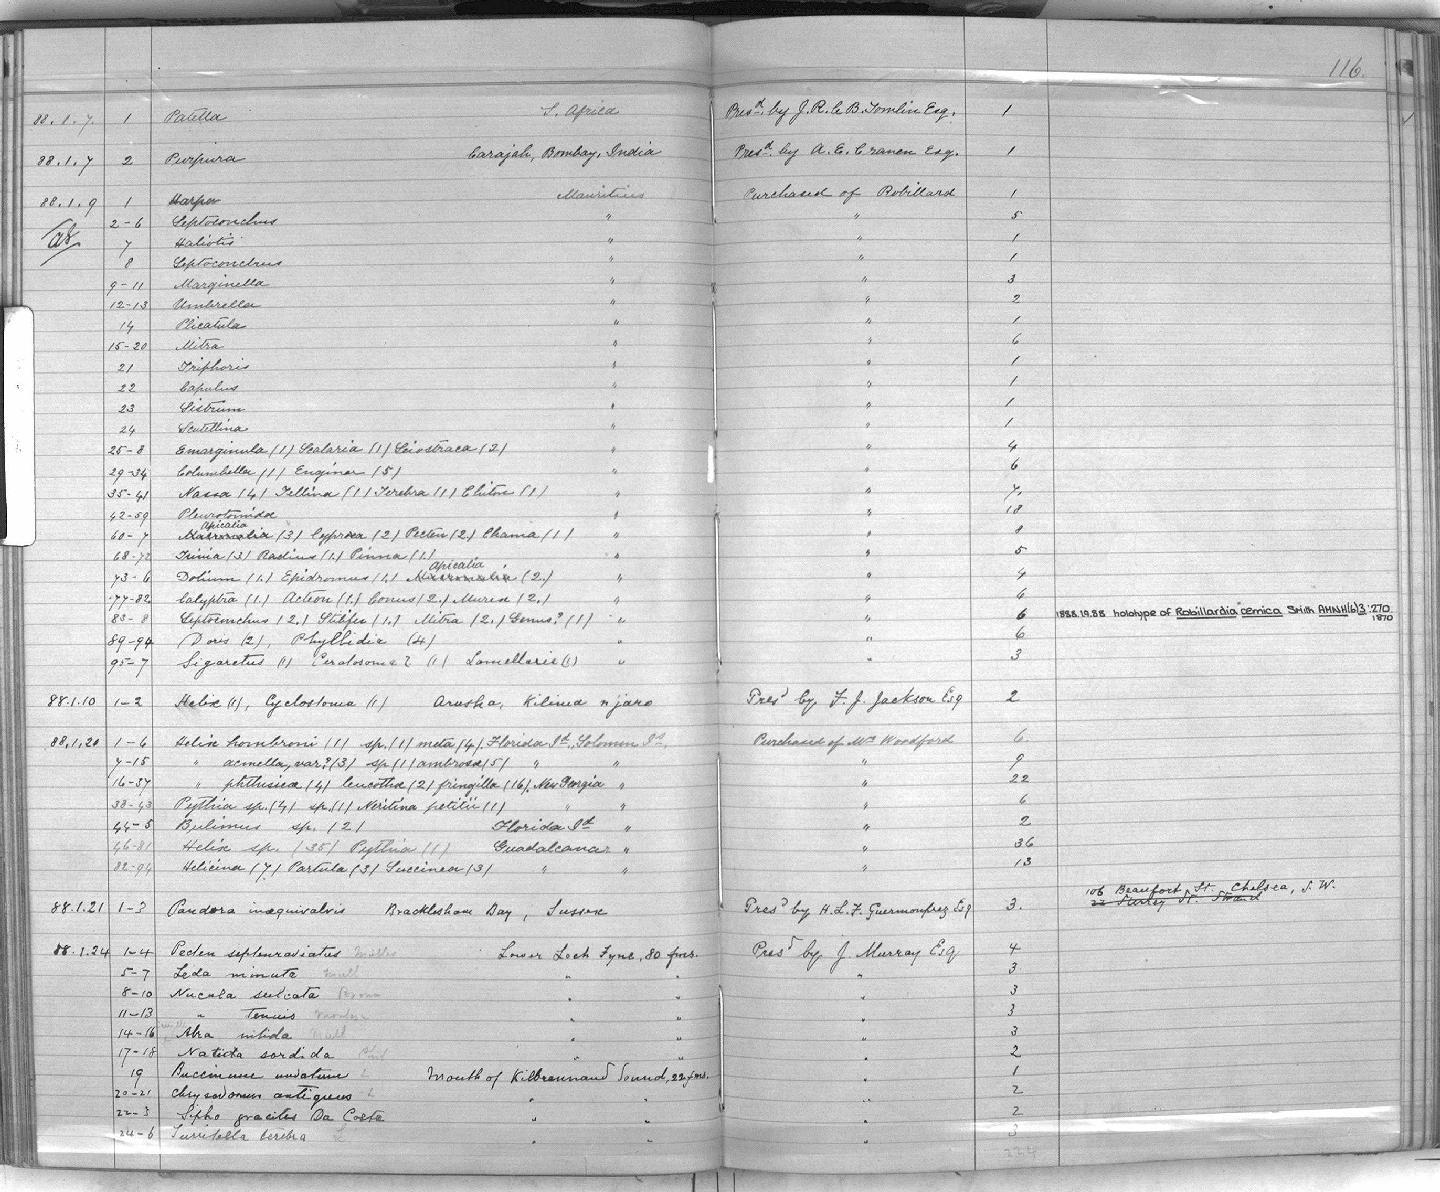 116.
88.1.7. 1 Patella S. Africa Presd. by J. R. le B. Tomlin Esq. 1
88.1.7 2 Purpura Carajah, Bombay, India Presd. by A. E. Craven Esq. 1
88.1.9 1 Harpa Mauritius Purchased of Robillard 1
2-6 Leptoconchus " " 5
7 Haliotis " " 1
8 Leptoconchus " " 1
9-11 Marginella " " 3
12-13 Umbrella " " 2
14 Plicatula " " 1
15-20 Mitra " " 6
21 Triphoris " " 1
22 Capulus " " 1
23 Sistrum " " 1
24 Scutellina " " 1
25-8 Emarginula (1) Scalaria (1) Leiostraca (2) " " 4
29-34 Columbella (1) Engina (5) " " 6
35-41 Nassa (4) Tellina (1) Terebra (1) Chiton (1) " " 7.
42-59 Pleurotomidæ " " 18
Apicalia
60-7 (3) Cypræa (2) Pecten (2) Chama (1) " " 8
68-72 (3) Radius (1.) Pinna (1.) " " 5
Apicalia
73-6 Dolium (1.) Epidromus (1.) (2.) " " 4
77-82 Calyptra (1.) Action (1.) Conus (2.) Murex (2.) " " 6
83-8 Leptoconchus (2.) Stilifer (1.) Mitra (2.) Genus? (1) " " 6 1888.1.9.88 holotype of Robillardia cernica Smith AMNH(6)3:270
1870
89-94 Doris (2), Phyllidia (4) " " 6
95-7 Sigaretus (1) Ceratosoma? (1) Lamellaria (1) " " 3
88.1.10 1-2 Helix (1), Cyclostoma (1) Arusha, Kilima njaro Presd by F. J. Jackson Esq 2
88.1.20 1-6 Helix hombroni (1) sp. (1) meta (4) Florida Id., Solomon Is. Purchased of Mr Woodford 6
7-15 " acmella, var? (3) sp (1) ambrosa (5) " " " 9
16-37 " phthisica (4) leucothæ (2) fringilla (16), New Georgia " " 22
38-43 Pythia sp. (4) sp. (1) Neritina petitii (1) " " " 6
44-5 Bulimus sp. (2) Florida Id " " 2
46-81 Helix sp. (35) Pythia (1) Guadalcanar " " 36
82-94 Helicina (7) Partula (3) Succinea (3) " " " 13
106 Beaufort St. Chelsea, S.W.
88.1.21 1-3 Pandora inæquivalvis Bracklesham Bay, Sussex Presd by H. L. F. Guermonprez Esq 3. 22 Surrey St. Strand
88.1.24 1-4 Pecten septemradiatus Lower Loch Fyne, 80 fms. Presd by J. Murray Esq 4
5-7 Leda minuta Mull " " " 3
8-10 Nucula sulcata Bronn " " " 3
11-13 " tenuis " " " 3
14-16 Abra nitida Mull " " " 3
17-18 Natica sordida " " " 2
19 Buccinum undatum L Mouth of Kilbrennand Sound, 22 fms. " 1
20-21 Chrysodomus antiquus L " " " 2
22-3 Sipho gracilis Da Costa " " " 2
24-6 Turritella terebra L " " " 3
224